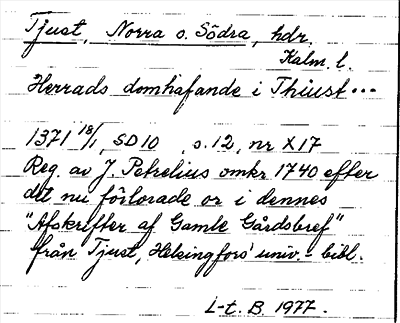 Tjust, Norra o. Södra, hdr.
Kalm. l.
Herrads domhafande i Thiust...
1371 18/1, SD 10, s. 12, nr X17
Reg. av J. Petrelius omkr 1740 efter
det nu förlorade or i dennes
"Afskriffter af Gamle Gårdsbref"
från Tjust, Helsingfors' univ.-bibl.
L-t. B. 1977.